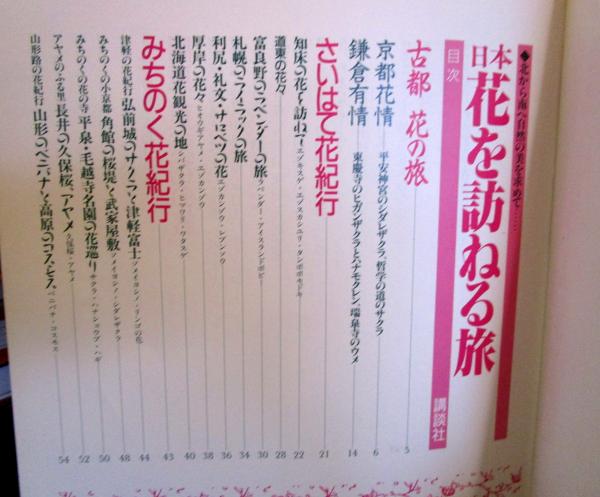 ◆北から南へ自然の美を求めて……
日本花を訪ねる旅
目次
講談社
古都 花の旅 5
京都花情 平安神宮のシダレザクラ、哲学の道のサクラ 6
鎌倉有情 東慶寺のヒガンザクラとハナモクレン、瑞泉寺のウメ 14
さいはて花紀行 21
知床の花を訪ねて エゾキスゲ・エゾスカシユリ・タンポポモドキ 22
道東の花々 28
富良野のラベンダーの旅 ラベンダー・アイスランドポピー 30
札幌のライラックの旅 34
利尻・礼文・サロベツの花 エゾカンゾウ・レブンソウ 36
厚岸の花々 ヒオウギアヤメ・エゾカンゾウ 38
北海道花観光の地 シバザクラ・ヒマワリ・ワタスゲ 40
みちのく花紀行 43
津軽の花紀行 弘前城のサクラと津軽富士 ソメイヨシノ・リンゴの花 44
みちのくの小京都 角館の桜堤と武家屋敷 ソメイヨシノ・シダレザクラ 48
みちのくの花の寺 平泉・毛越寺名園の花巡り サクラ・ハナショウブ・ハギ 50
アヤメのふる里 長井の久保桜、アヤメ 久保桜・アヤメ 52
山形路の花紀行 山形のベニバナと高原のコスモス ベニバナ・コスモス 54